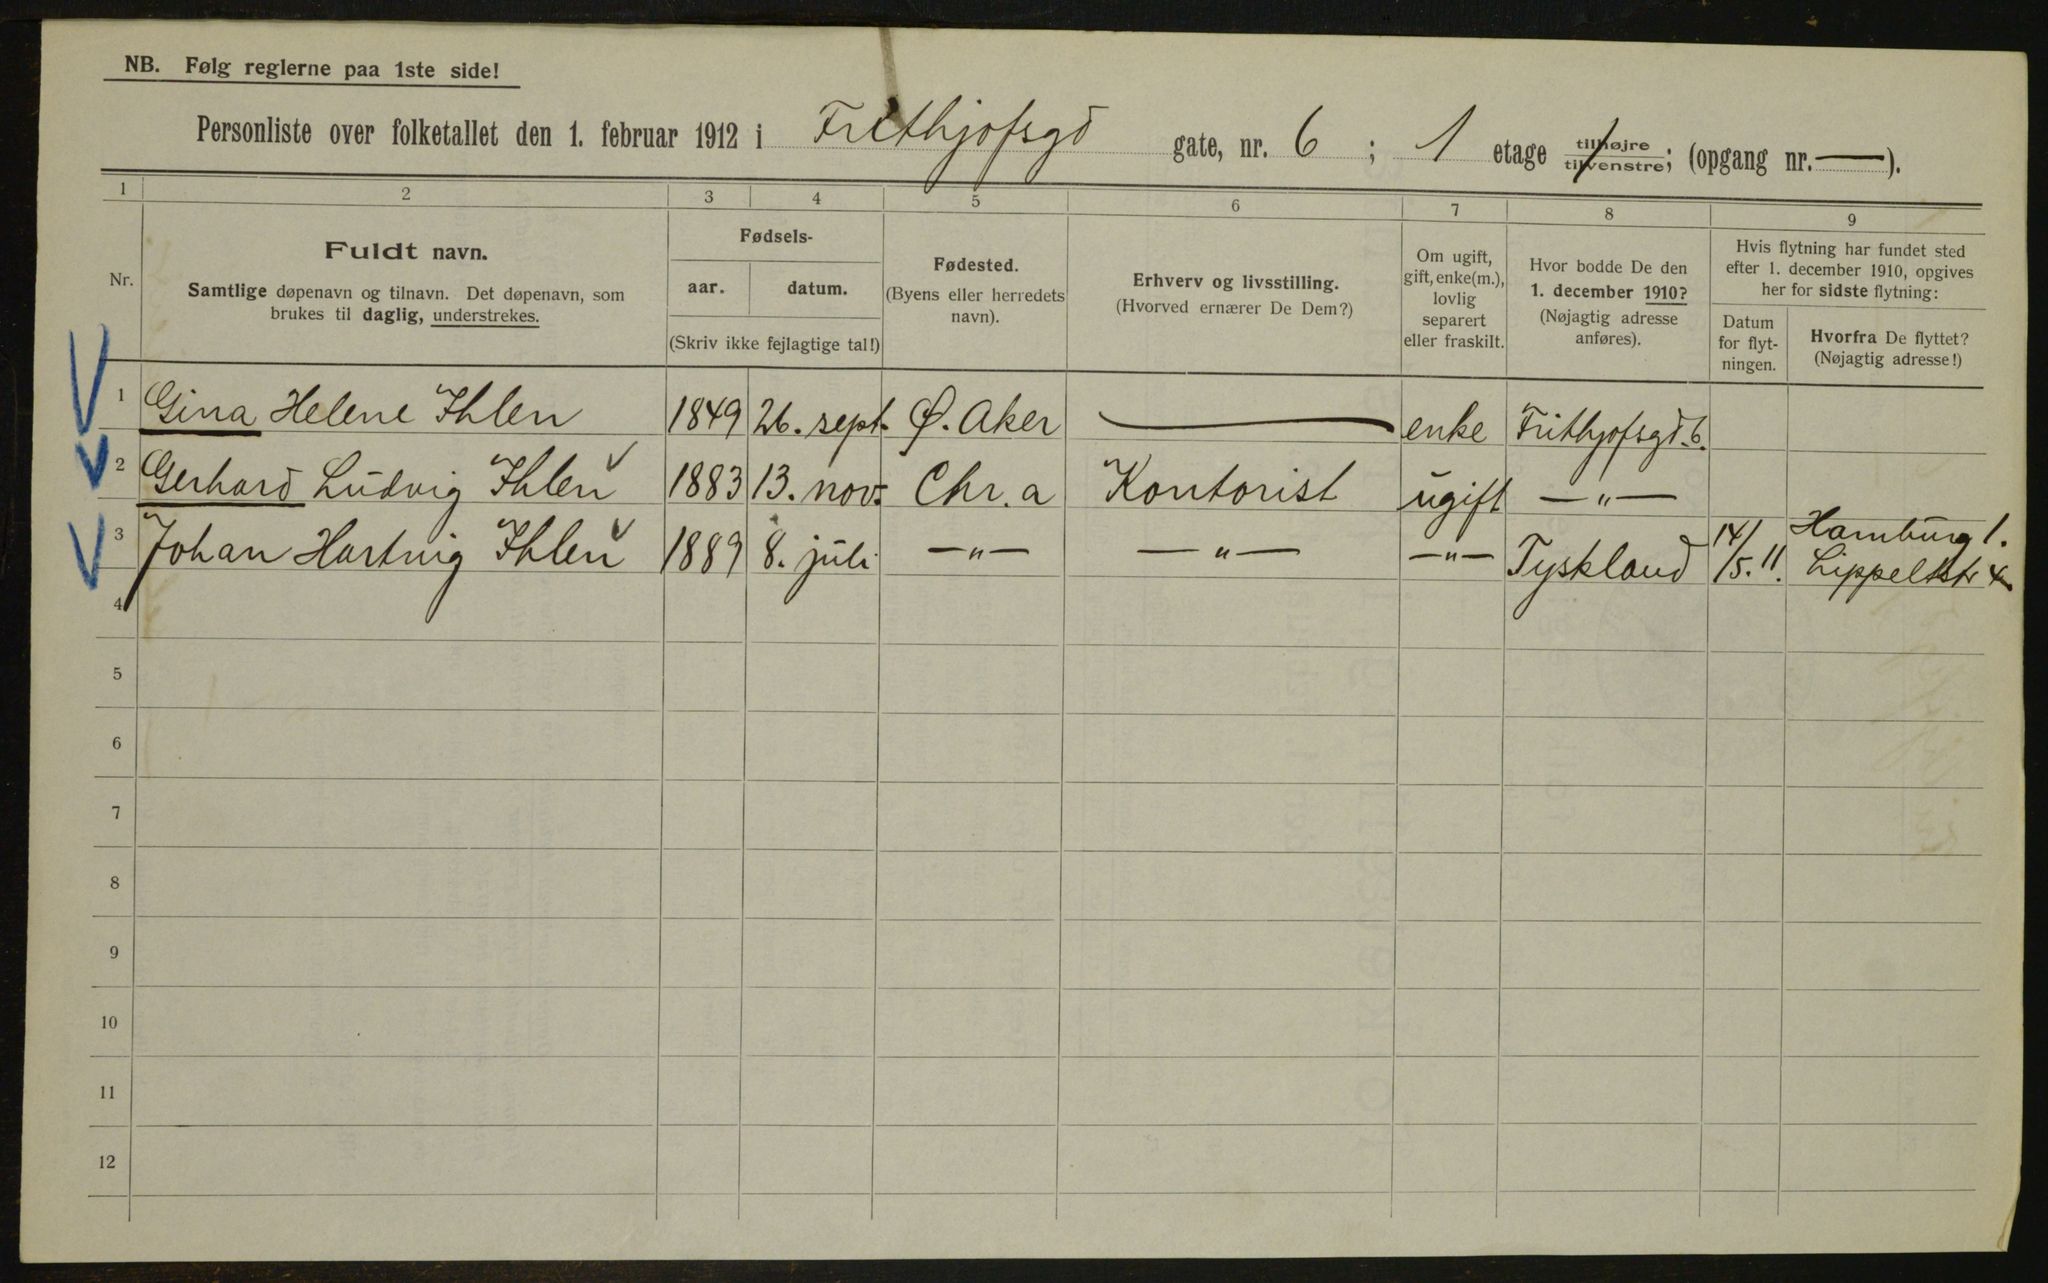 NB. Følg reglerne paa 1ste side!
Personliste over folketallet den 1. februar 1912 i Frithjofsgd gate, nr. 6 ; 1 etage tilhøjre tilvenstre; (opgang nr. — ).
1 2 3 4 5 6 7 8 9
Nr.
Fuldt navn.
Samtlige døpenavn og tilnavn. Det døpenavn, som
brukes til daglig, understrekes.
Fødsels-
aar. datum.
(Skriv ikke fejlagtige tal!)
Fødested.
(Byens eller herredets
navn).
Erhverv og livsstilling.
(Hvorved ernærer De Dem?)
Om ugift,
gift, enke(m.),
lovlig
separert
eller fraskilt.
Hvor bodde De den
1. december 1910?
(Nøjagtig adresse
anføres).
Hvis flytning har fundet sted
efter 1. december 1910, opgives
her for sidste flytning:
Datum
for flyt-
ningen.
Hvorfra De flyttet?
(Nøjagtig adresse!)
1 Gina Helene Ihlen 1849 26. sept. Ø. Aker — enke Frithjofsgd. 6.
2 Gerhard Ludvig Ihlen 1883 13. nov. Chr. a Kontorist ugift —"—
3 Johan Hartvig Ihlen 1889 8. juli —"— —"— —"— Tyskland 14/5. 11. Hamburg 1.
Lippeltstr 4
4
5
6
7
8
9
10
11
12